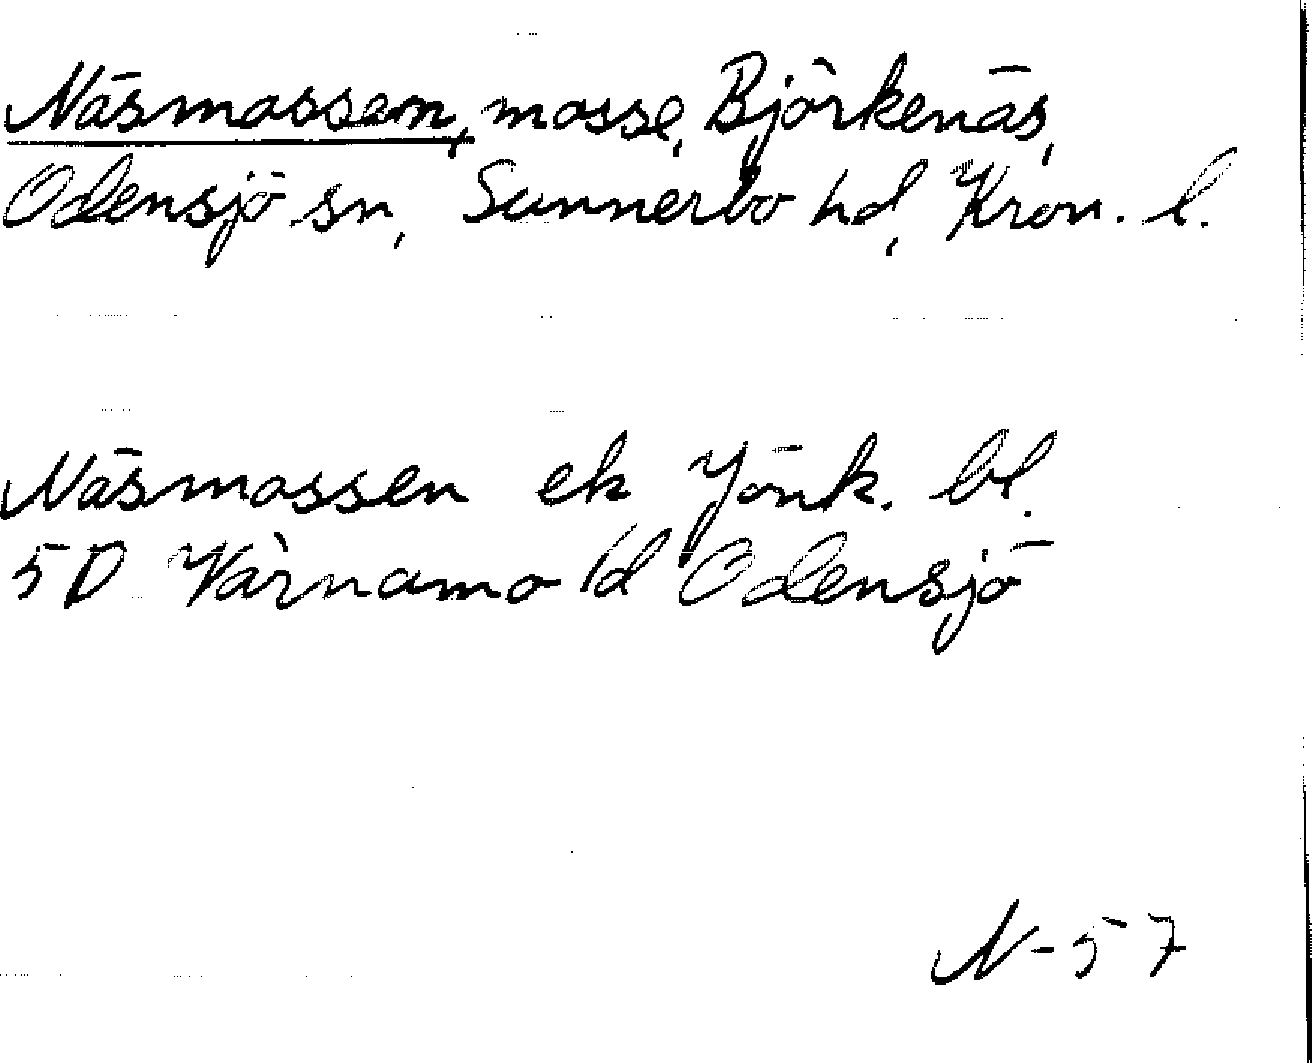 Näsmossen, mosse, Björkenäs,
Odensjö sn, Sunnerbo hd, Kron. l.
Näsmossen ek Jönk. bl.
5D Värnamo 1d Odensjö
N-57